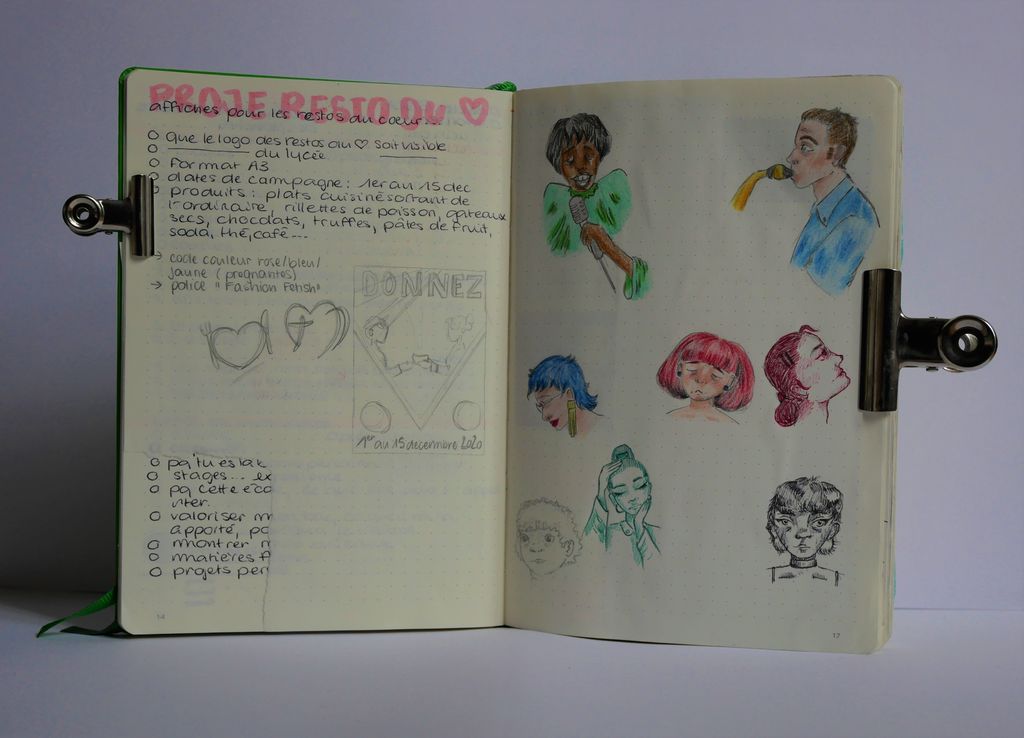 PROJE RESTO DU ♡
affiches pour les restos du coeur...
O que le logo des restos du ♡ soit visible
O du lycée
O Format A3
O dates de campagne : 1er au 15 dec
O produits : plats cuisinés sortant de
l'ordinaire, rillettes de poisson, gateaux
secs, chocolats, truffes, pâtes de fruit,
soda, thé, café...
→ code couleur rose/bleu/
jaune (pregnantes)
→ police "Fashion Fetish"
DONNEZ
1er au 15 decembre 2020
O pq tu es là
O stages... ex
O pq cette éco
O valoriser m
apporté, po
O montrer m
O matières
O projets per
14
17